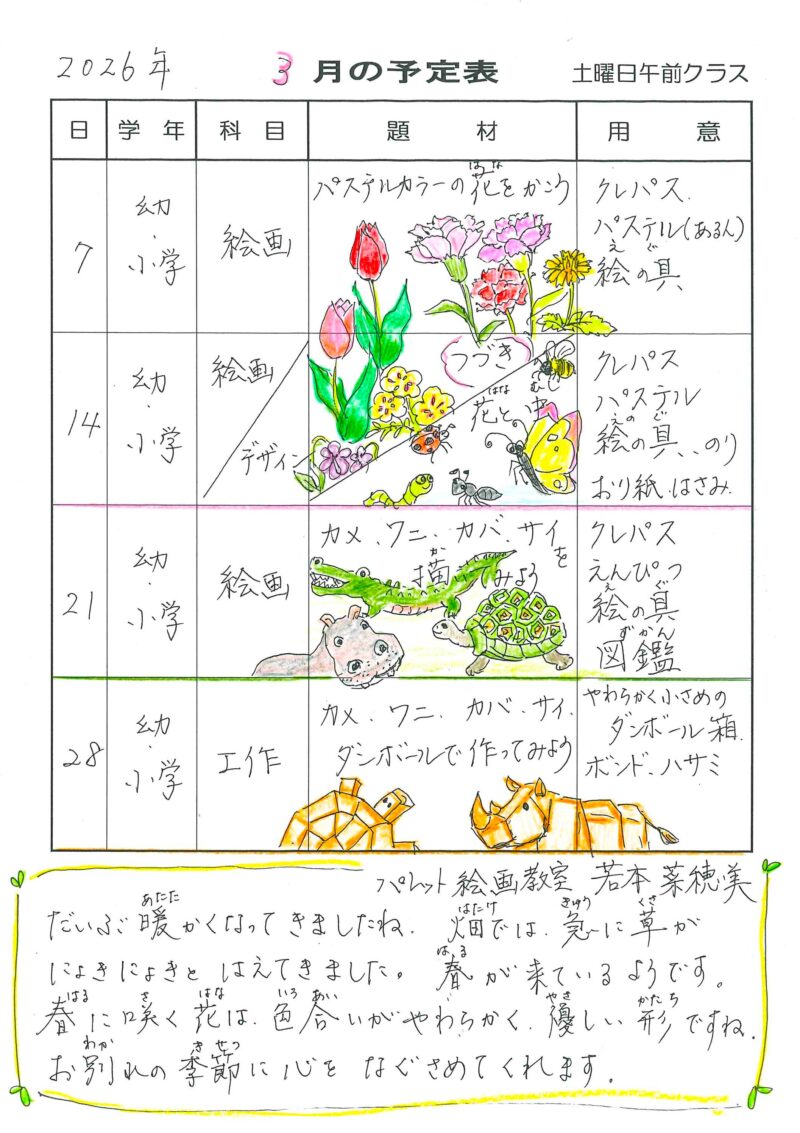 2026年 3月の予定表 土曜日午前クラス
日 学年 科目 題材 用意
7
幼・小学
絵画
パステルカラーの花をかこう
はな
クレパス、
パステル(あるん)
えぐ
絵の具、
14
幼・小学
絵画
デザイン
つづき
花と虫
はな むし
クレパス
パステル
えのぐ
絵の具、、のり
おり紙、はさみ、
21
幼・小学
絵画
カメ、ワニ、カバ、サイを
描いてみよう
か
クレパス
えんぴつ
え ぐ
絵の具
ずかん
図鑑
28
幼・小学
工作
カメ、ワニ、カバ、サイ、
ダンボールで作ってみよう
やわらかく小さめの
ダンボール箱、
ボンド、ハサミ
パレット絵画教室 若本 菜穂美
あたた はたけ きゅう くさ
だいぶ暖かくなってきましたね、畑では、急に草が
はる
にょきにょきとはえてきました。春が来ているようです。
はる さ はな いろ あい やさ かたち
春に咲く花は、色合いがやわらかく、優しい形ですね、
わか きせつ
お別れの季節に心をなぐさめてくれます。